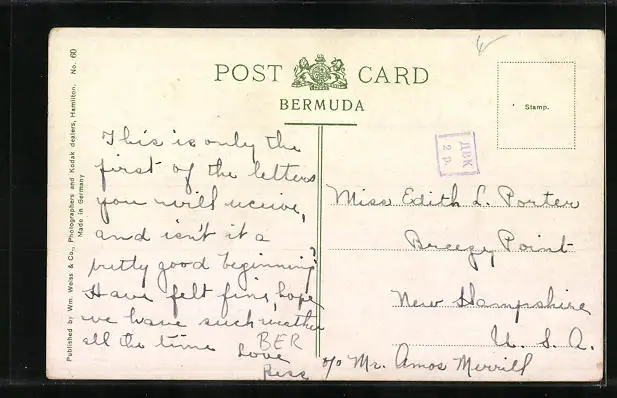 POST CARD
BERMUDA
Stamp.
Published by Wm. Weiss & Co., Photographers and Kodak dealers, Hamilton. No. 60
Made in Germany
This is only the
first of the letters
you will receive,
and isn't it a
pretty good beginning?
Have felt fine, hope
we have such weather
all the time
BER
Love
Bess
ДВК
2 р.
Miss Edith L. Porter
Breezy Point
New Hampshire
U. S. A.
c/o Mr. Amos Merrill